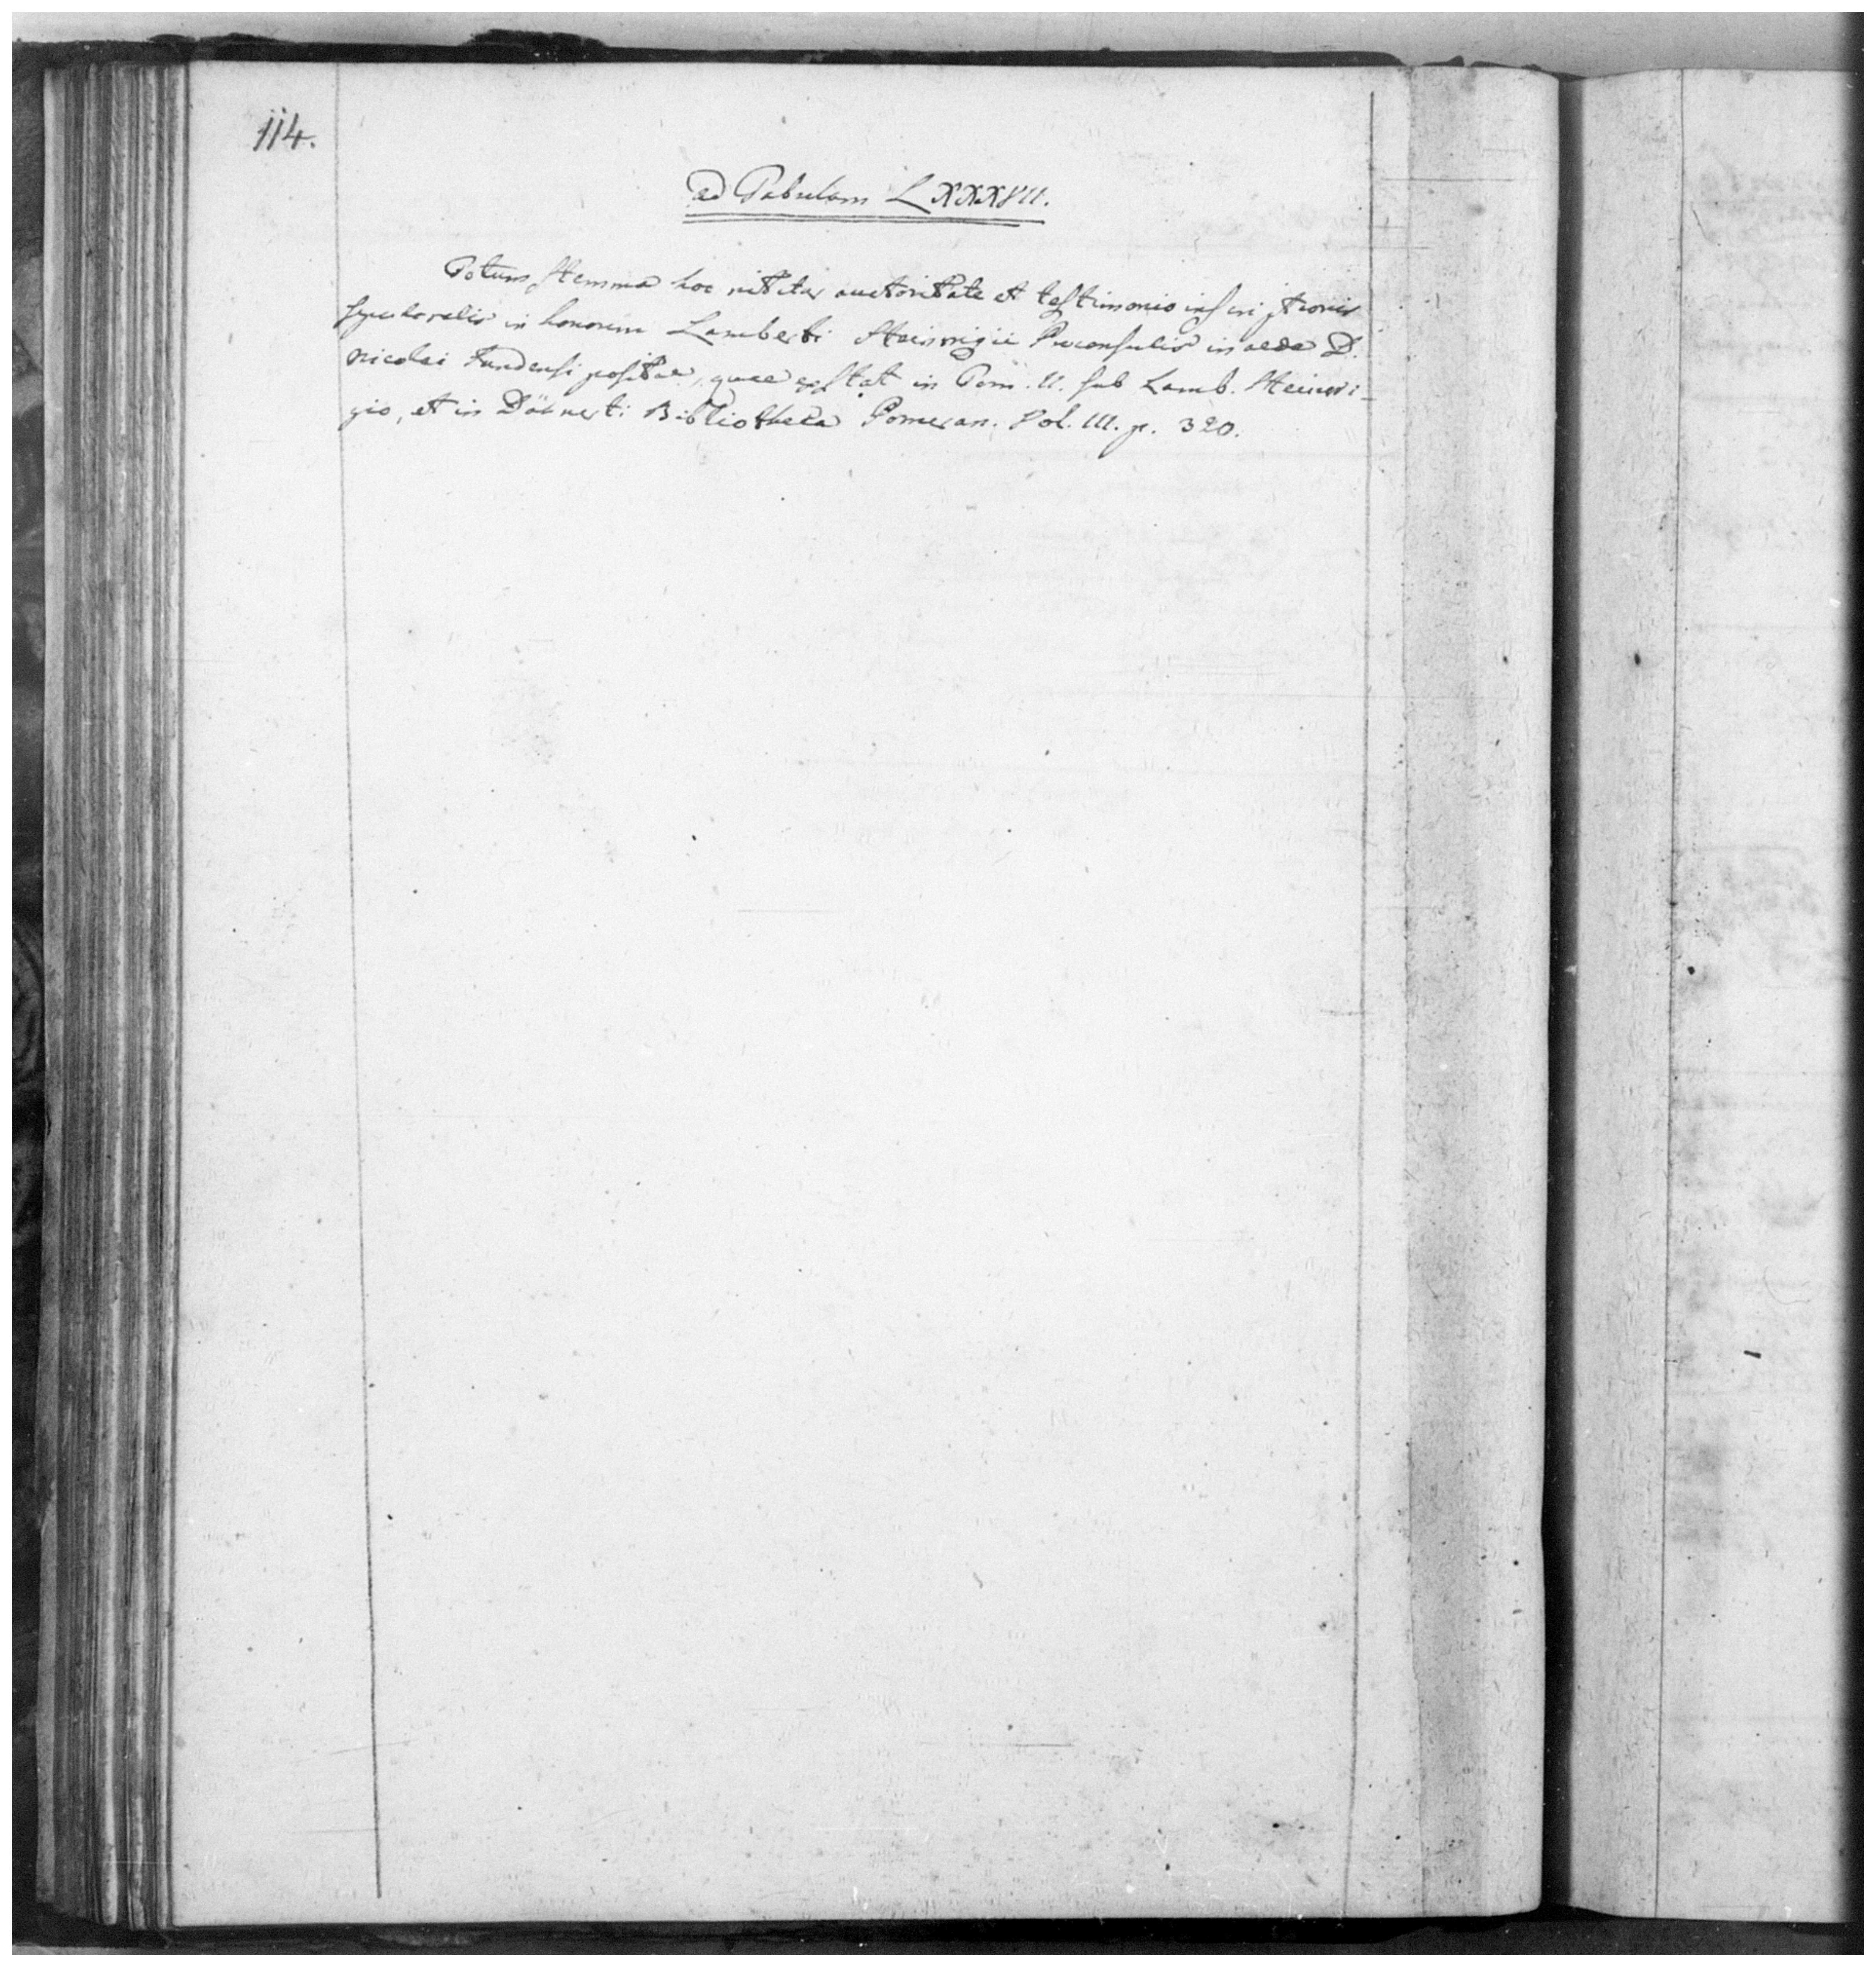 114.
ad Tabulam LXXXVII.
Totum Stemma hoc nititur auctoritate et testimonio inscriptionis
sepulcralis in honorem Lamberti Steinwigii Proconsulis in aede D.
Nicolai Sundensi positae, quae exstat in Tom. II. sub Lamb. Steinwi-
gio, et in Dähnerti Bibliotheca Pomeran. Vol. III. p. 320.